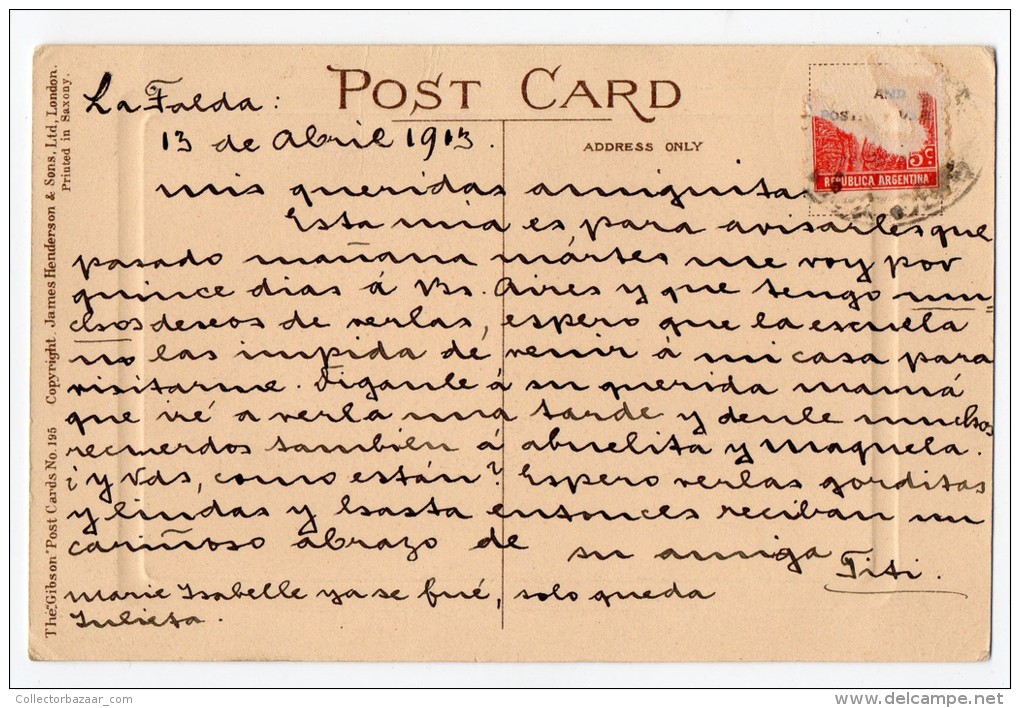 POST CARD
ADDRESS ONLY
AND
5c
REPUBLICA ARGENTINA
The "Gibson" Post Cards No. 195 Copyright. James Henderson & Sons, Ltd, London.
Printed in Saxony.
La Falda:
13 de Abril 1913.
Mis queridas amiguitas
Esta mia es para avisarles que
pasado mañana mártes me voy por
quince dias á Bs. Aires y que tengo mu-
chos deseos de verlas, espero que la escuela
no las impida dé venir á mi casa para
visitarme. Díganle á su querida mamá
que iré a verla una tarde y denle muchos
recuerdos también á abuelita y Maquela.
¡y Vds, como están? Espero verlas gorditas
y lindas y hasta entonces reciban un
cariñoso abrazo de su amiga
Titi.
Marie Isabelle ya se fué, solo queda
Julieta.
Collectorbazaar_com
delcampe.net